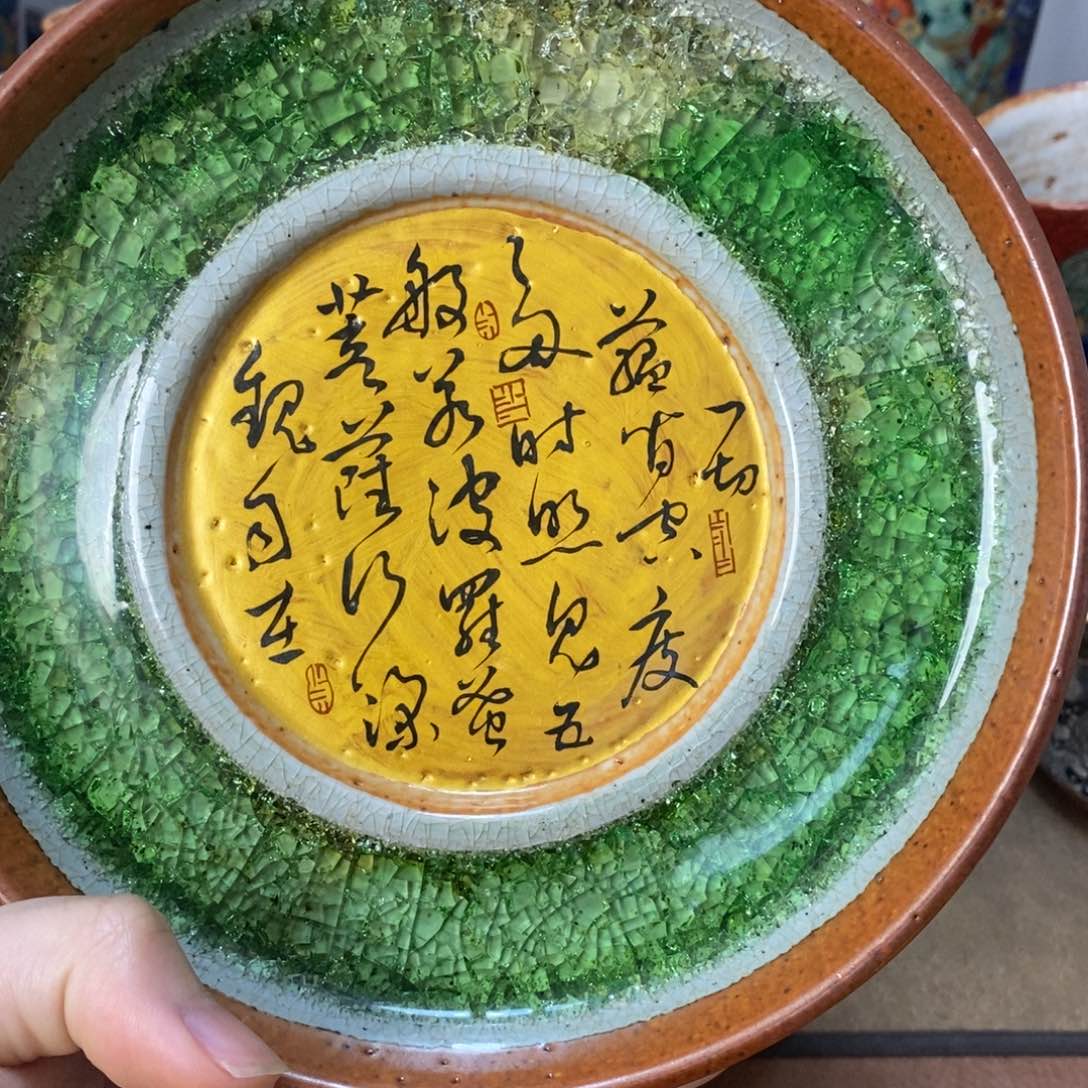 觀自在
菩薩行深
般若波羅蜜
多時照見五
蘊皆空度
一切